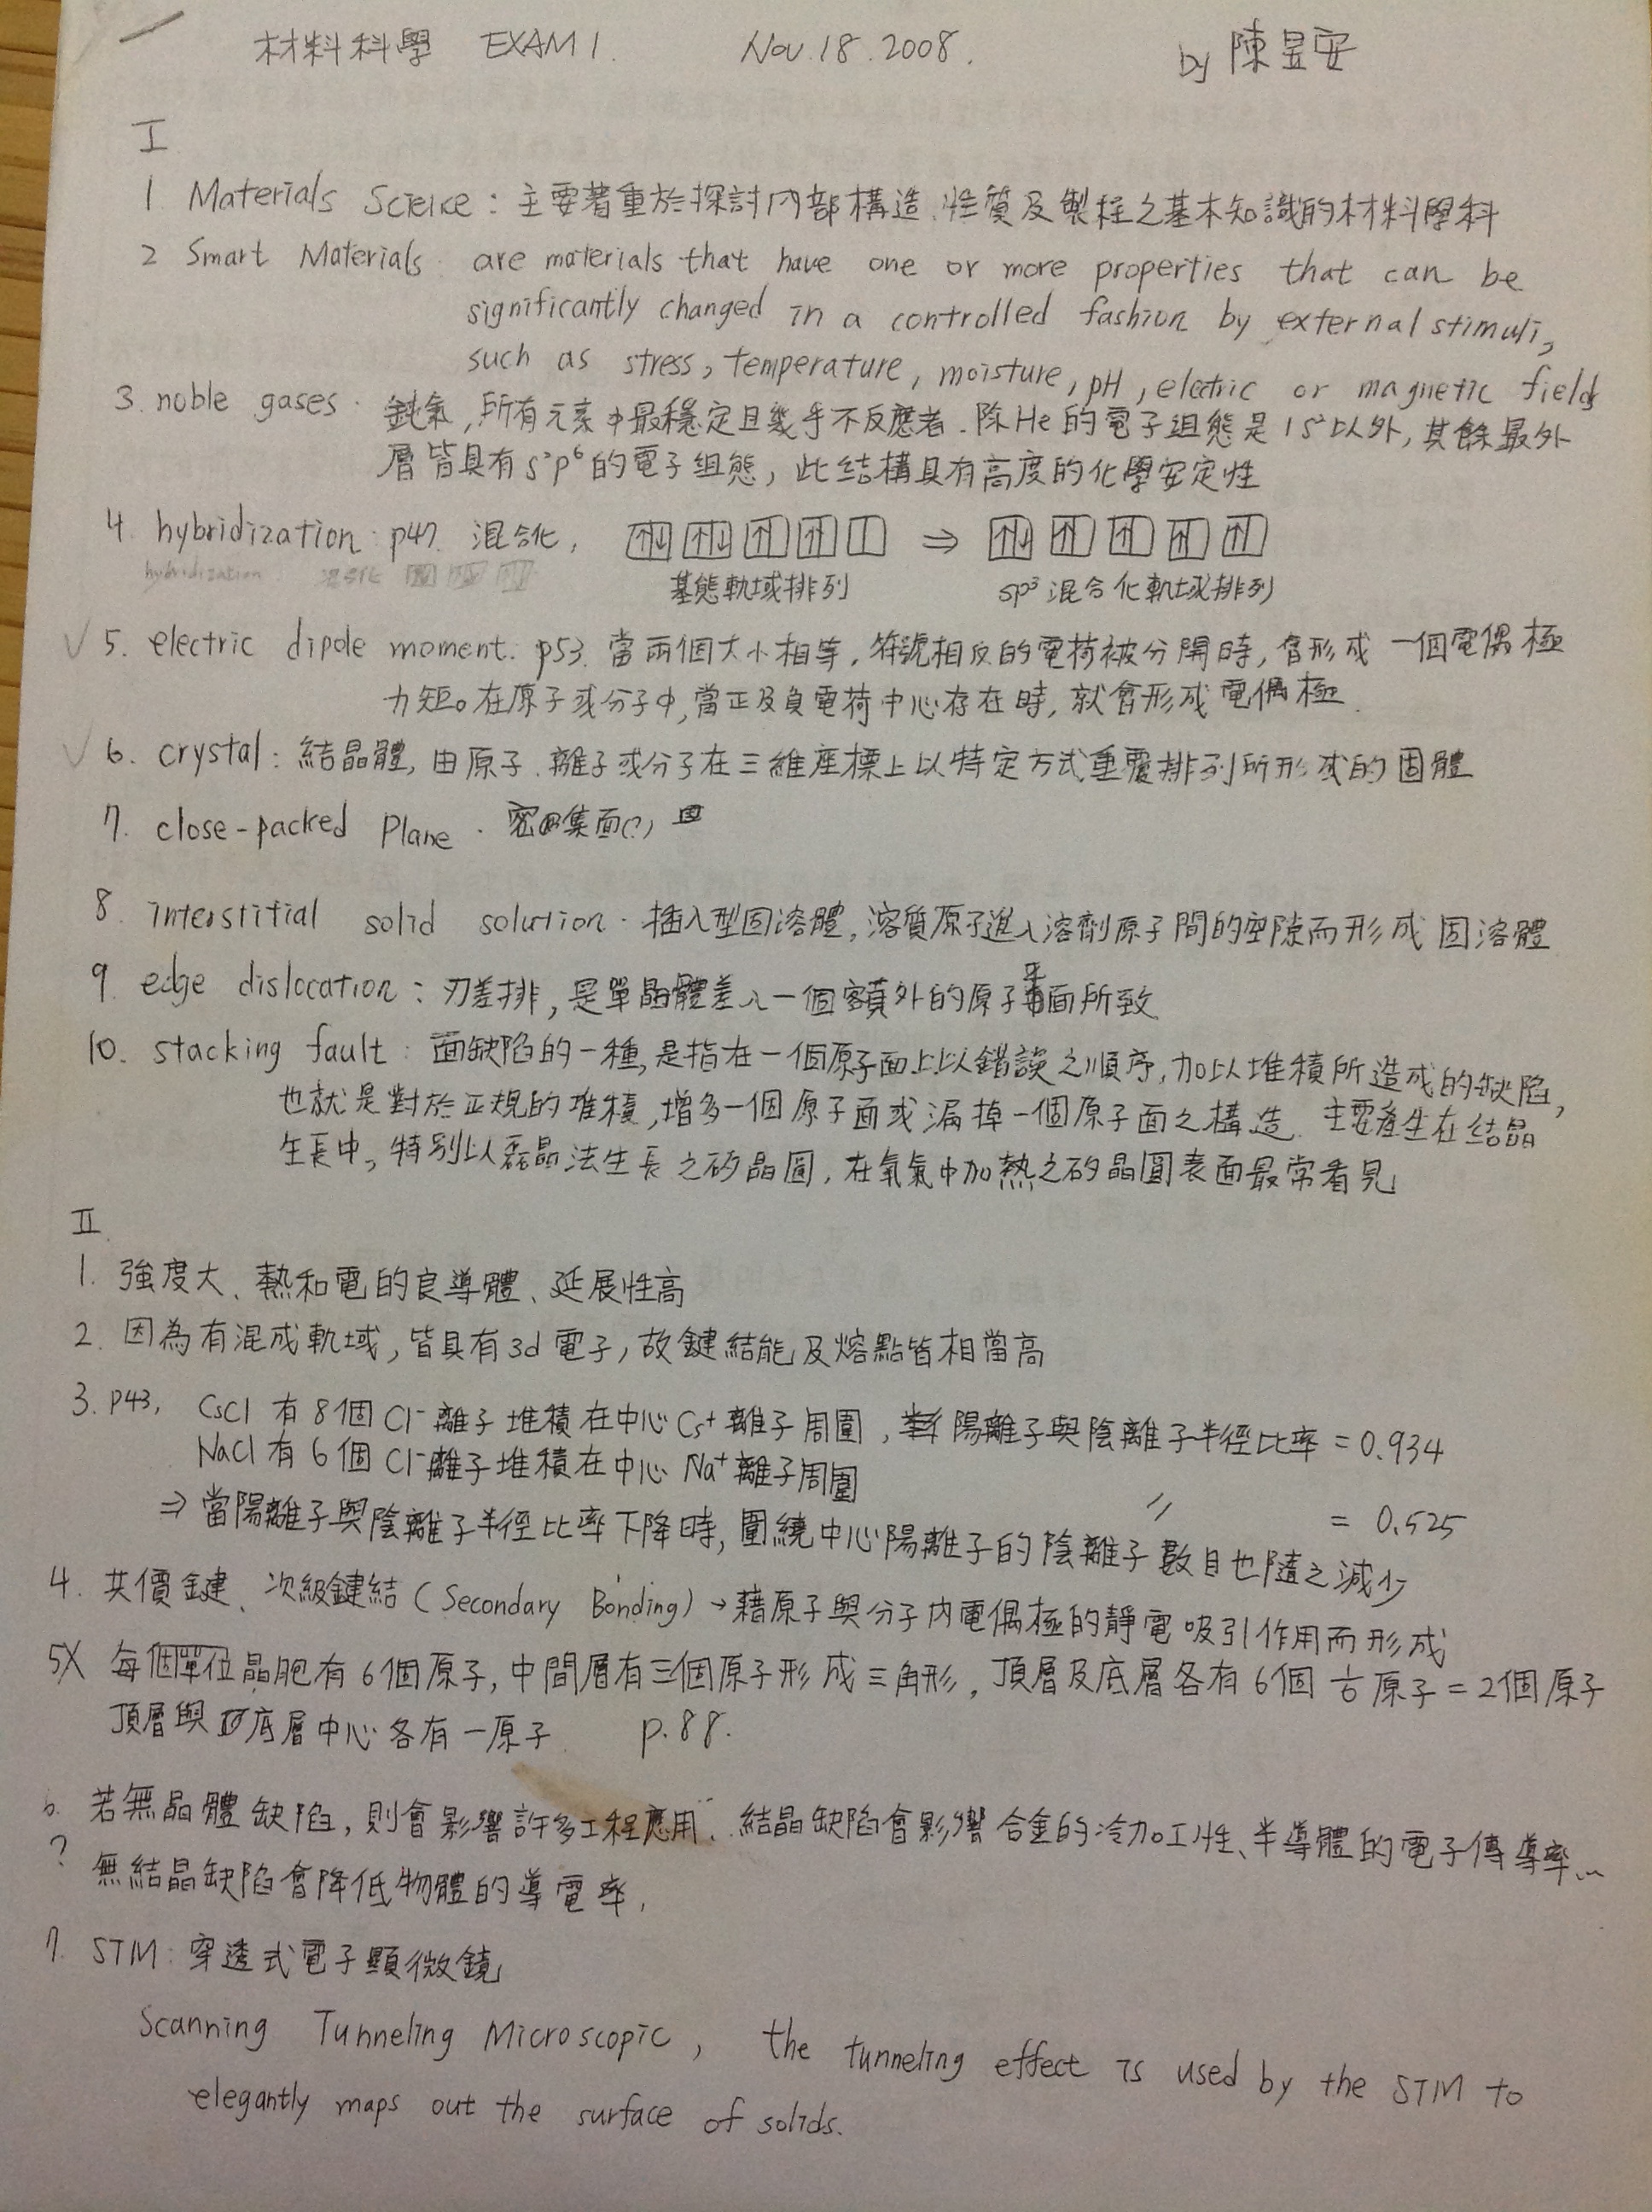 材料科學 EXAM 1. Nov. 18. 2008. by 陳昱安
I
1 Materials Science : 主要著重於探討內部構造、性質及製程之基本知識的材料學科
2 Smart Materials are materials that have one or more properties that can be
significantly changed in a controlled fashion by external stimuli,
such as stress, temperature, moisture, pH, electric or magnetic fields
3. noble gases. 鈍氣, 所有元素中最穩定且幾乎不反應者. 除He的電子組態是1s²以外, 其餘最外
層皆具有s²p⁶的電子組態, 此結構具有高度的化學安定性
4. hybridization: p47. 混合化, ⇒
hybridization 混合化
基態軌域排列 sp³混合化軌域排列
✓ 5. electric dipole moment. p53. 當兩個大小相等, 符號相反的電荷被分開時, 會形成一個電偶極
力矩。在原子或分子中, 當正及負電荷中心存在時, 就會形成電偶極.
✓ 6. crystal: 結晶體, 由原子、離子或分子在三維座標上以特定方式重覆排列所形成的固體
7. close-packed Plane. 密集面(?)
8. interstitial solid solution. 插入型固溶體, 溶質原子進入溶劑原子間的空隙而形成固溶體
9. edge dislocation: 刃差排, 是單晶體差入一個額外的原子半面所致
10. stacking fault: 面缺陷的一種, 是指在一個原子面上以錯誤之順序, 加以堆積所造成的缺陷,
也就是對於正規的堆積, 增多一個原子面或漏掉一個原子面之構造. 主要產生在結晶
生長中, 特別以磊晶法生長之矽晶圓, 在氧氣中加熱之矽晶圓表面最常看見
II
1. 強度大、熱和電的良導體、延展性高
2. 因為有混成軌域, 皆具有3d電子, 故鍵結能及熔點皆相當高
3. p43, CsCl 有8個Cl⁻離子堆積在中心Cs⁺離子周圍, 陽離子與陰離子半徑比率 = 0.934
NaCl 有6個Cl⁻離子堆積在中心Na⁺離子周圍 〃 = 0.525
⇒ 當陽離子與陰離子半徑比率下降時, 圍繞中心陽離子的陰離子數目也隨之減少
4. 共價鍵、次級鍵結 (Secondary Bonding) → 藉原子與分子內電偶極的靜電吸引作用而形成
5X 每個單位晶胞有6個原子, 中間層有三個原子形成三角形, 頂層及底層各有6個 1/6 原子 = 2個原子
頂層與底層中心各有一原子 p.88.
6. 若無晶體缺陷, 則會影響許多工程應用. 結晶缺陷會影響合金的冷加工性、半導體的電子傳導率...
? 無結晶缺陷會降低物體的導電率.
7. STM: 穿透式電子顯微鏡
Scanning Tunneling Microscopic, the tunneling effect is used by the STM to
elegantly maps out the surface of solids.